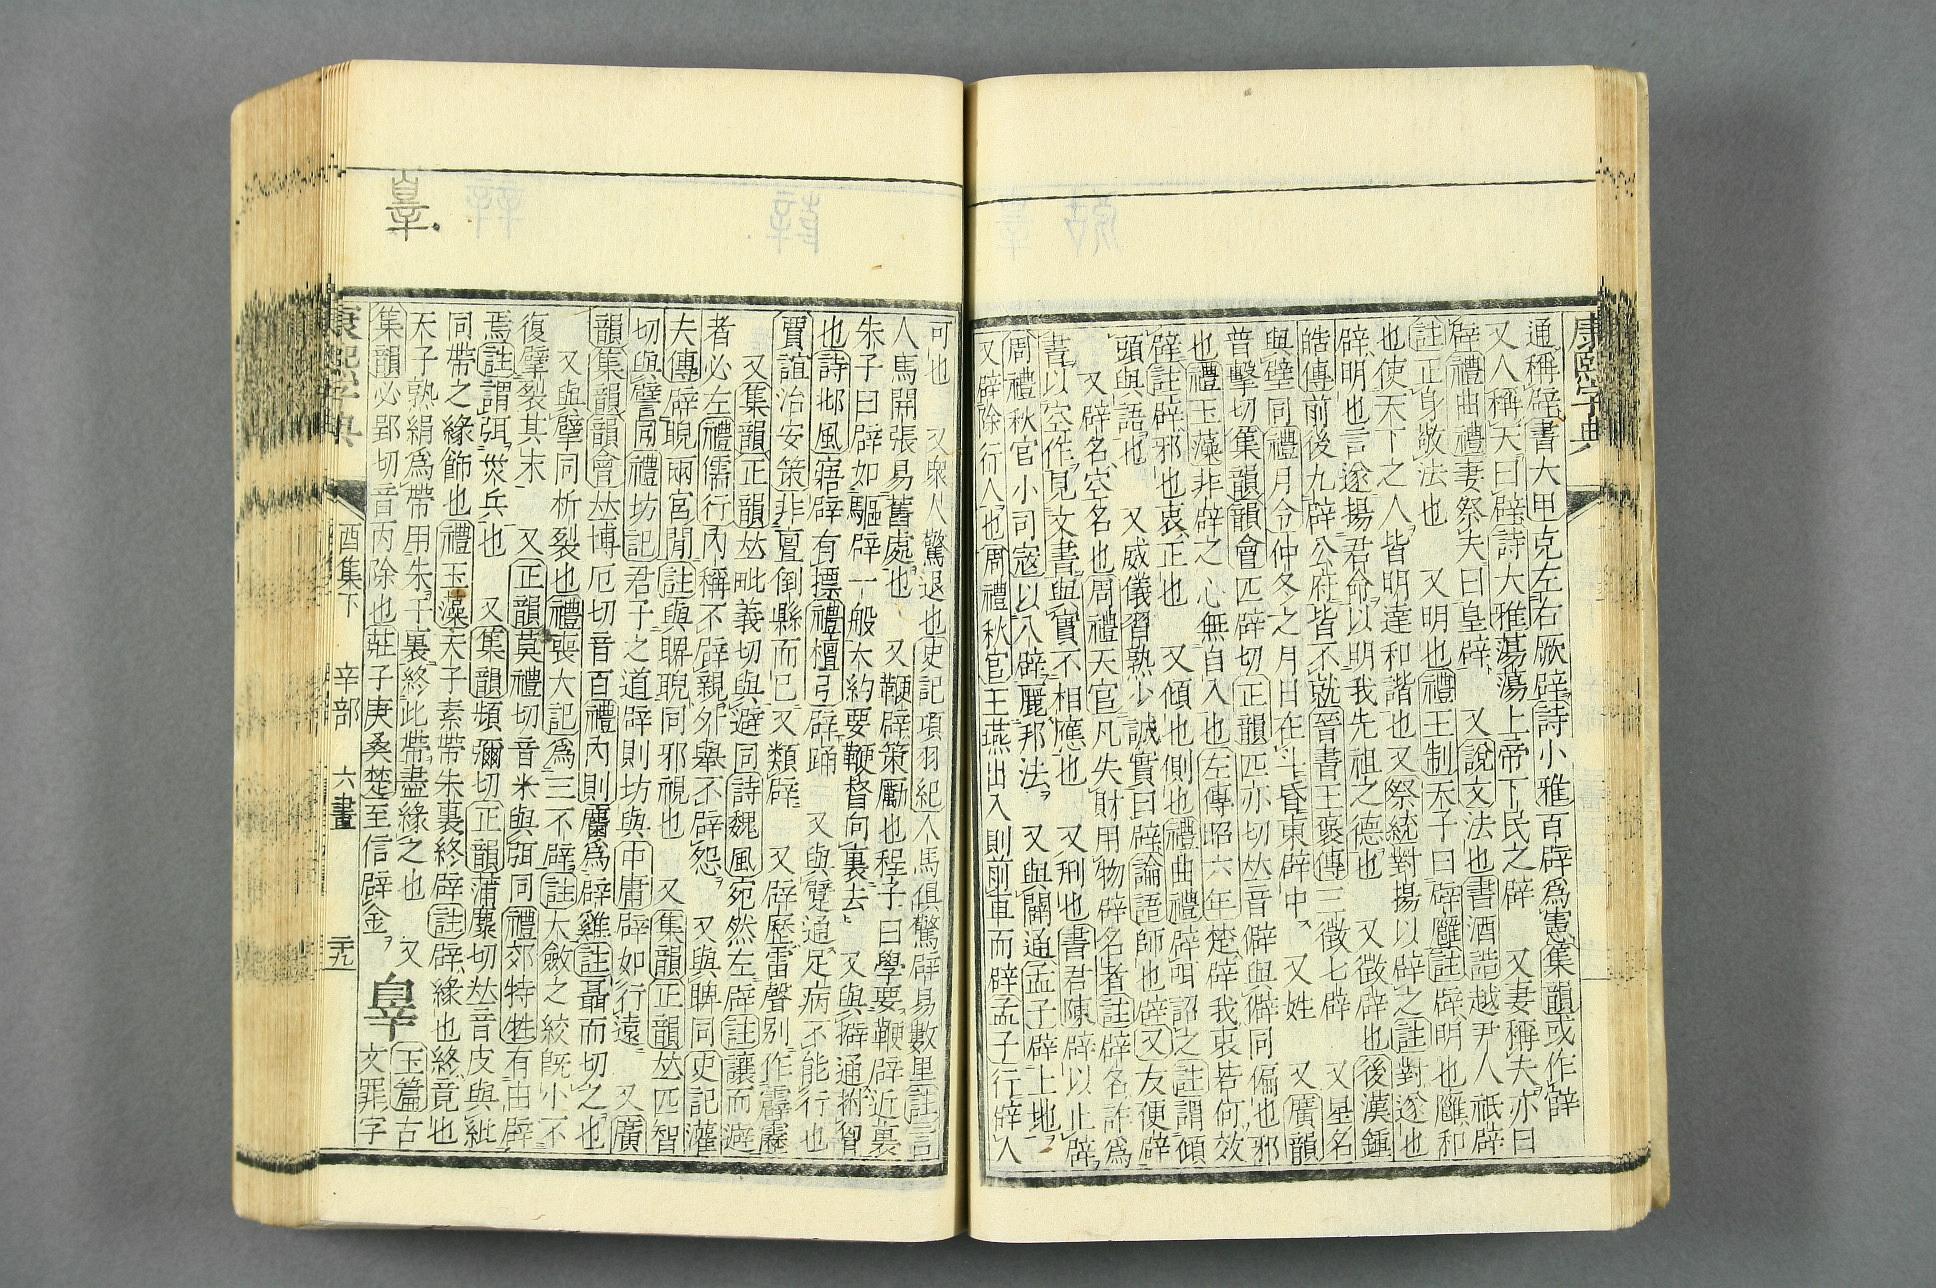 康熙字典
通稱辟書大甲克左右厥辟詩小雅百辟爲憲集韻或作𨐨
又人稱天曰辟詩大雅蕩蕩上帝下民之辟 又妻稱夫亦曰
辟禮曲禮妻祭夫曰皇辟 又說文法也書酒誥越尹人祇辟
註正身敬法也 又明也禮王制天子曰辟廱註辟明也廱和
也使天下之人皆明達和諧也又祭統對揚以辟之註對遂也
辟明也言遂揚君命以明我先祖之德也 又徵辟也後漢鍾
皓傳前後九辟公府皆不就晉書王裒傳三徵七辟 又星名
與壁同禮月令仲冬之月日在斗昏東辟中 又姓 又廣韻
普擊切集韻韻會匹辟切正韻匹亦切𠀤音僻與僻同偏也邪
也禮玉藻非辟之心無自入也左傳昭六年楚辟我衷若何效
辟註辟邪也衷正也 又傾也側也禮曲禮辟咡詔之註謂傾
頭與語也 又威儀習熟少誠實曰辟論語師也辟又友便辟
又辟名空名也周禮天官凡失財用物辟名者註辟名詐爲
書以空作見文書與實不相應也 又刑也書君陳辟以止辟
周禮秋官小司寇以八辟麗邦法 又與闢通孟子辟土地
又辟除行人也周禮秋官王燕出入則前車而辟孟子行辟人
可也 又衆人驚退也史記項羽紀人馬俱驚辟易數里註言
人馬開張易舊處也 又鞭辟策勵也程子曰學要鞭辟近裏
朱子曰辟如驅辟一般大約要鞭督向裏去 又與擗通拊心
也詩邶風寤辟有摽禮檀弓辟踊 又與躄通足病不能行也
賈誼治安策非亶倒縣而已又類辟 又辟歷雷聲別作霹靂
又集韻正韻𠀤毗義切與避同詩魏風宛然左辟註讓而避
者必左禮儒行內稱不辟親外舉不辟怨 又與睥同史記灌
夫傳辟睨兩宮閒註與睥睨同邪視也 又集韻正韻𠀤匹智
切與譬同禮坊記君子之道辟則坊與中庸辟如行遠 又廣
韻集韻韻會𠀤博厄切音百禮內則麕爲辟雞註聶而切之也
又與擘同析裂也禮喪大記爲三不辟註大斂之絞旣小不
復擘裂其末 又正韻莫禮切音米與弭同禮郊特牲有由辟
焉註謂弭災兵也 又集韻頻彌切正韻蒲麋切𠀤音皮與紕
同帶之緣飾也禮玉藻天子素帶朱裏終辟註辟緣也終竟也
天子熟絹爲帶用朱于裏終此帶盡緣之也 又
集韻必郢切音丙除也莊子庚桑楚至信辟金 辠 玉篇古文罪字
康熙字典 酉集下 辛部 六畫
辠